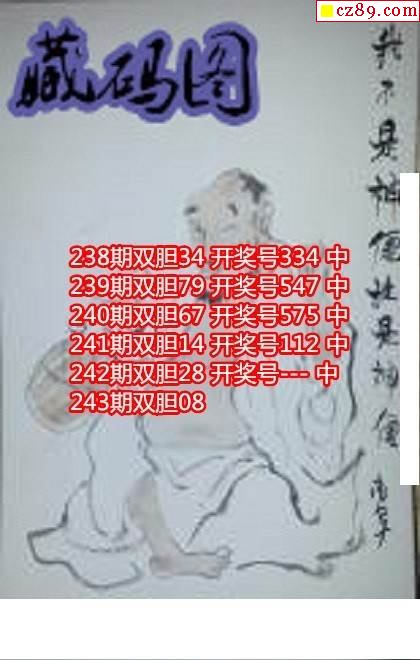 cz89.com
藏码图
238期双胆34 开奖号334 中
239期双胆79 开奖号547 中
240期双胆67 开奖号575 中
241期双胆14 开奖号112 中
242期双胆28 开奖号--- 中
243期双胆08
我不是神但